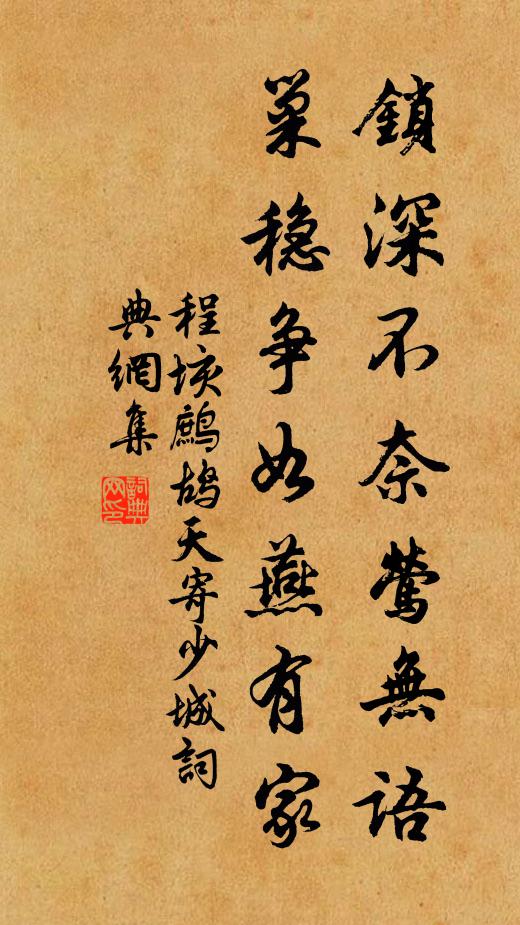 鎖深不奈鶯無語
巢穩爭如燕有家
程垓鷓鴣天寄少城詞
典網集
詞典
网印